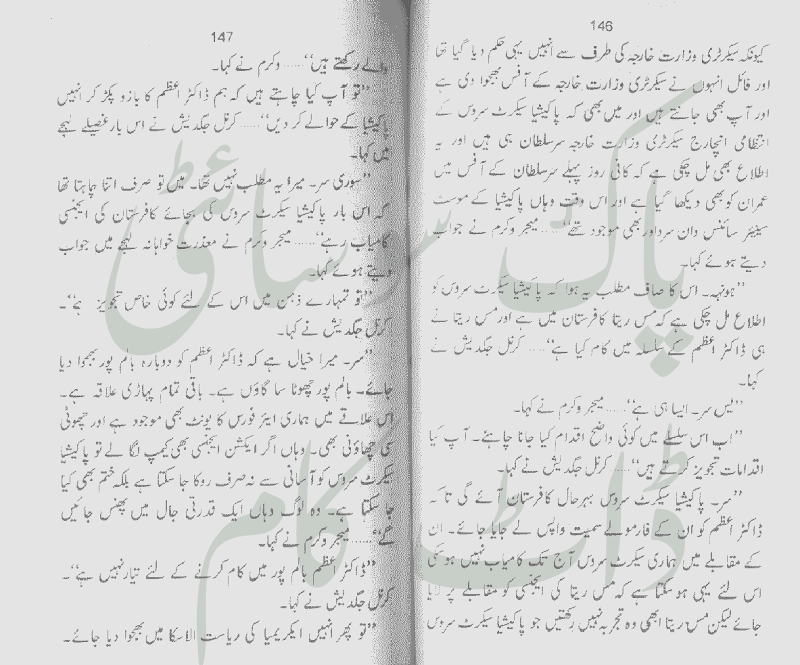 146
کیونکہ سیکرٹری وزارت خارجہ کی طرف سے انہیں یہی حکم دیا گیا تھا
اور فائل انہوں نے سیکرٹری وزارت خارجہ کے آفس بھجوا دی ہے
اور آپ بھی جانتے ہیں اور میں بھی کہ پاکیشیا سیکرٹ سروس کے
انتظامی انچارج سیکرٹری وزارت خارجہ سرسلطان ہی ہیں اور یہ
اطلاع بھی مل چکی ہے کہ کافی روز پہلے سرسلطان کے آفس میں
عمران کو بھی دیکھا گیا ہے اور اس وقت وہاں پاکیشیا کے موسٹ
سینیئر سائنس دان سرداور بھی موجود تھے‘‘...... میجر وکرم نے جواب
دیتے ہوئے کہا۔
’’ہونہہ۔ اس کا صاف مطلب یہ ہوا کہ پاکیشیا سیکرٹ سروس کو
اطلاع مل چکی ہے کہ مس ریتا کافرستان میں ہے اور مس ریتا نے
ہی ڈاکٹر اعظم کے سلسلہ میں کام کیا ہے‘‘..... کرنل جگدیش نے
کہا۔
’’یس سر۔ ایسا ہی ہے‘‘...... میجر وکرم نے کہا۔
’’اب اس سلسلے میں کوئی واضح اقدام کیا جانا چاہئے۔ آپ کیا
اقدامات تجویز کرتے ہیں‘‘..... کرنل جگدیش نے کہا۔
’’سر۔ پاکیشیا سیکرٹ سروس بہرحال کافرستان آئے گی تاکہ
ڈاکٹر اعظم کو ان کے فارمولے سمیت واپس لے جایا جائے۔ ان
کے مقابلے میں ہماری سیکرٹ سروس آج تک کامیاب نہیں ہو سکی
اس لئے یہی ہو سکتا ہے کہ مس ریتا کی ایجنسی کو مقابلے پر لایا
جائے لیکن مس ریتا ابھی وہ تجربہ نہیں رکھتیں جو پاکیشیا سیکرٹ سروس
147
والے رکھتے ہیں‘‘...... وکرم نے کہا۔
’’تو آپ کیا چاہتے ہیں کہ ہم ڈاکٹر اعظم کا بازو پکڑ کر انہیں
پاکیشیا کے حوالے کر دیں‘‘..... کرنل جگدیش نے اس بار غصیلے لہجے
میں کہا۔
’’سوری سر۔ میرا یہ مطلب نہیں تھا۔ میں تو صرف اتنا چاہتا تھا
کہ اس بار پاکیشیا سیکرٹ سروس کی بجائے کافرستان کی ایجنسی
کامیاب رہے‘‘...... میجر وکرم نے معذرت خواہانہ لہجے میں جواب
دیتے ہوئے کہا۔
’’تو تمہارے ذہن میں اس کے لئے کوئی خاص تجویز ہے‘‘۔
کرنل جگدیش نے کہا۔
’’سر۔ میرا خیال ہے کہ ڈاکٹر اعظم کو دوبارہ بالم پور بھجوا دیا
جائے۔ بالم پور چھوٹا سا گاؤں ہے۔ باقی تمام پہاڑی علاقہ ہے۔
اس علاقے میں ہماری ایئر فورس کا یونٹ بھی موجود ہے اور چھوٹی
سی چھاؤنی بھی۔ وہاں اگر ایکشن ایجنسی بھی کیمپ لگا لے تو پاکیشیا
سیکرٹ سروس کو آسانی سے نہ صرف روکا جا سکتا ہے بلکہ ختم بھی کیا
جا سکتا ہے۔ وہ لوگ وہاں ایک قدرتی جال میں پھنس جائیں
گے‘‘...... میجر وکرم نے کہا۔
’’ڈاکٹر اعظم بالم پور میں کام کرنے کے لئے تیار نہیں ہے‘‘۔
کرنل جگدیش نے کہا۔
’’تو پھر انہیں ایکریمیا کی ریاست الاسکا میں بھجوا دیا جائے۔
پاک سوسائٹی
ڈاٹ کام